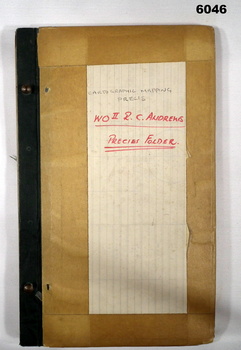 6046
CARTOGRAPHIC MAPPING
PRECIS
WO II R. C. ANDREWS
PRECIS FOLDER.